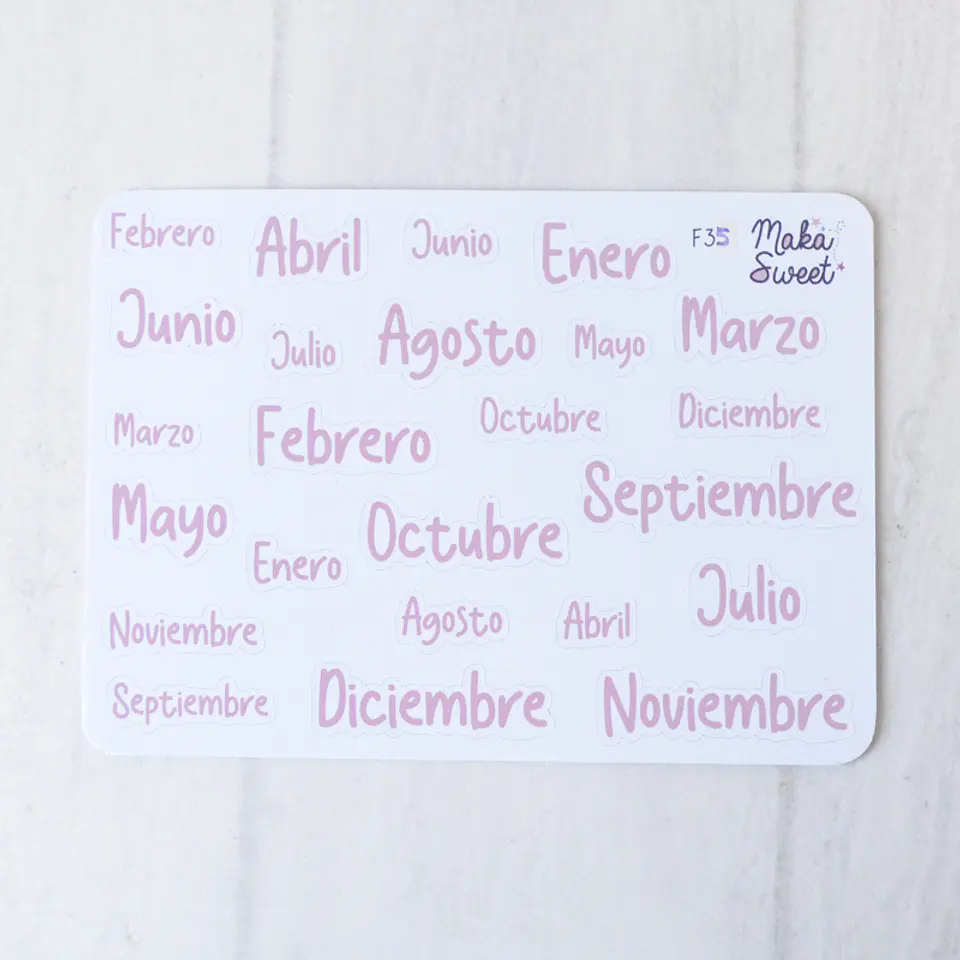 Febrero Abril Junio Enero F35 Maka Sweet
Junio Julio Agosto Mayo Marzo
Marzo Febrero Octubre Diciembre
Mayo Octubre Septiembre
Enero Julio
Noviembre Agosto Abril
Septiembre Diciembre Noviembre